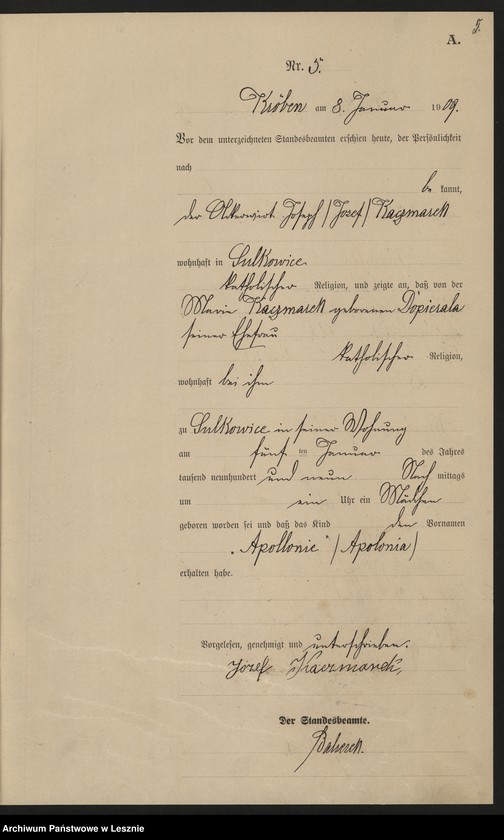 5.
A.
Nr. 5.
Kröben am 8. Januar 1909.
Vor dem unterzeichneten Standesbeamten erschien heute, der Persönlichkeit
nach
be kannt,
der Ackerwirt Joseph /Josef/ Kaczmarek
wohnhaft in Sulkowice
katholischer Religion, und zeigte an, daß von der
Marie Kaczmarek geborenen Dopierala
seiner Ehefrau
katholischer Religion,
wohnhaft bei ihm
zu Sulkowice in seiner Wohnung
am fünf ten Januar des Jahres
tausend neunhundert und neun Nach mittags
um ein Uhr ein Mädchen
geboren worden sei und daß das Kind den Vornamen
„Apollonie" /Apolonia/
erhalten habe.
Vorgelesen, genehmigt und unterschrieben.
Józef Kaczmarek,
Der Standesbeamte.
Archiwum Państwowe w Lesznie